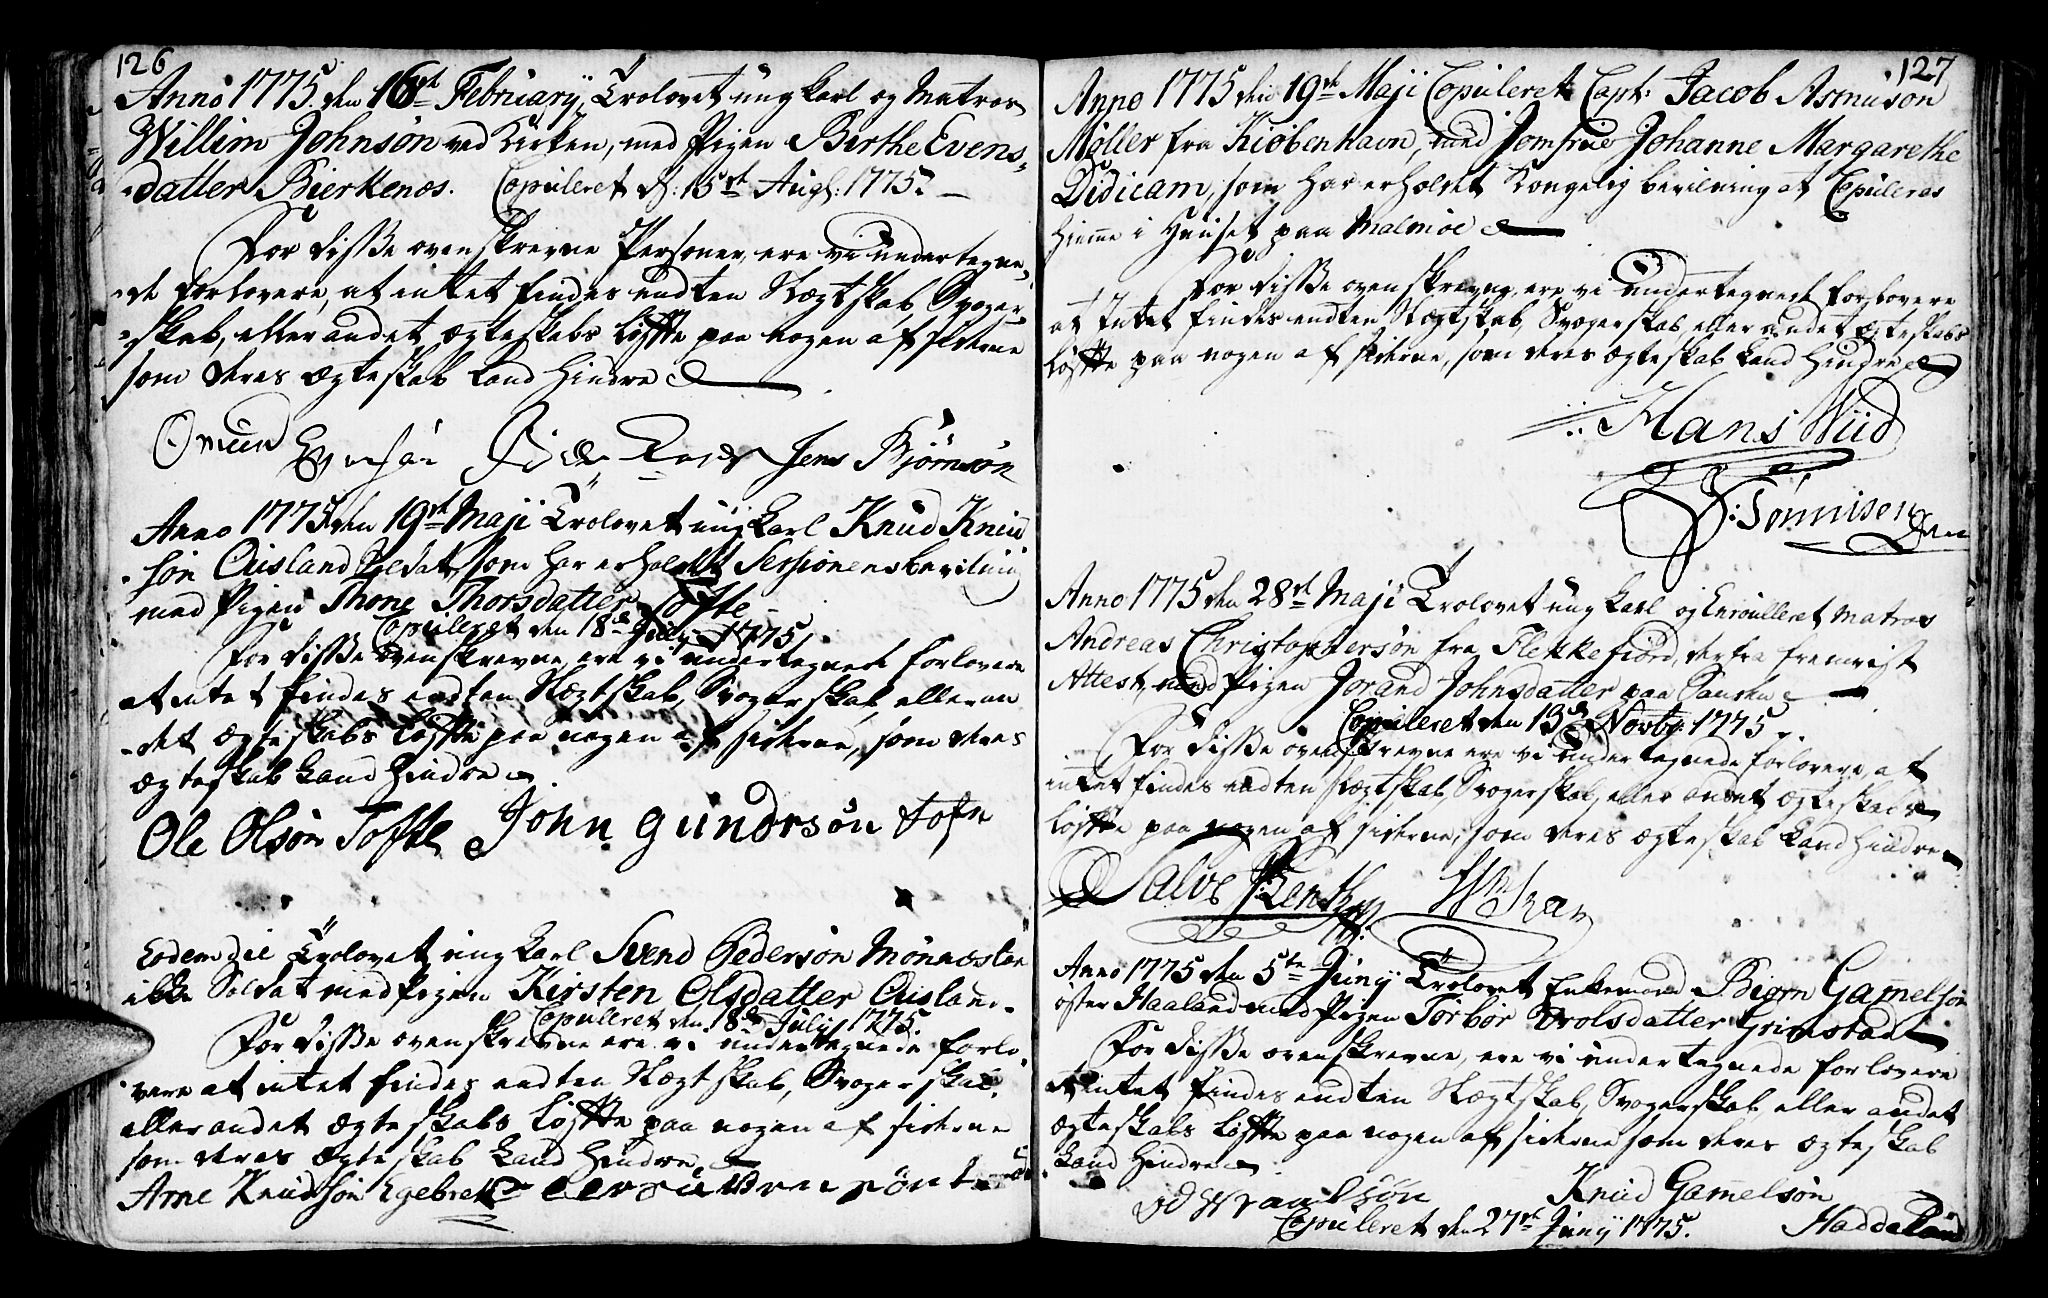 126
Anno 1775. den 16de February, Trolovet ung Karl og Matros
Willim Johnsøn ved Kirken, med Pigen Berthe Evens-
datter Bierkenæs. Copuleret d: 15de Augl: 1775.
For disse ovenskrevne Personer, ere vi undertegne-
de Forlovere, at intet findes endten Slægtskab, Svoger-
skab, eller andet ægteskabs løffte paa nogen af siderne
som deres ægteskab kand hindre
Omund Jens Bjørnsøn
Anno 1775 den 19de Maji Trolovet ung Karl Knud Knud
søn Ousland Soldat, som har erholdt Sessionens bevilning
med Pigen Thone Thorsdatter Tofte
Copuleret den 18de July 1775.
For disse ovenskrevne, ere vi undertegnede forlovere
at intet findes endten Slægtskab, Svogerskab, eller an
det ægteskabs løffte paa nogen af siderne, som deres
ægteskab kand hindre
Ole Olsøn Tofte John gundersøn tofte
Eodem die Trolovet ung Karl Svend Pedersøn Mønnestøn
ikke Soldat med Pigen Kirsten Olsdatter Ousland.
Copuleret den 18de July 1775.
For disse ovenskrevne ere vi undertegnede forlo-
vere at intet findes endten Slægtskab, Svogerskab
eller andet ægteskabs løffte paa nogen af siderne
som deres ægteskab kand hindre
Arne Knudsøn Egebrek
127
Anno 1775 den 19de Maji Copuleret Capt: Jacob Asmuson
Møller fra Kiøbenhavn, med Jomfrue Johanne Margarethe
Didicam, som har erholdet Kongelig bevilning at Copuleres
hieme i Huuset paa Malmøe
For disse ovenskrevne, ere vi undertegnede forlovere
at intet findes endten Slægtskab, Svogerskab, eller andet ægteskabs
løffte paa nogen af siderne, som deres ægteskab kand hindre
Hans Wiid
Tønnisen
Anno 1775 den 28de Maji Trolovet ung Karl og Enroulleret Matros
Andreas Christophersøn fra Flekkefiord, derfra fremviist
Attest, med Pigen Jorand Johnsdatter paa Sansen
Copuleret den 13de Novbr 1775.
For disse ovenskrevne ere vi undertegnede forlovere, at
intet findes endten Slægtskab, Svogerskab, eller andet ægteskabs
løffte paa nogen af siderne, som deres ægteskab kand hindre
Salve
Anno 1775 den 5te Juny Trolovet Enkemand Biørn Gamelsøn
øster Haaland med Pigen Torbor Trolsdatter Grimstad
For disse ovenskrevne, ere vi undertegnede forlovere
at intet findes endten Slægtskab, Svogerskab, eller andet
ægteskabs løffte paa nogen af siderne som deres ægteskab
kand hindre
Knud Gamelsøn
Haddeland
Copuleret den 27de Juny 1775.